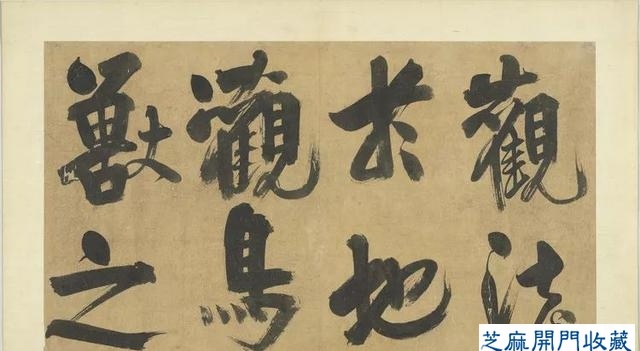 觀法
於地
觀鳥
獸之
芝麻開門收藏